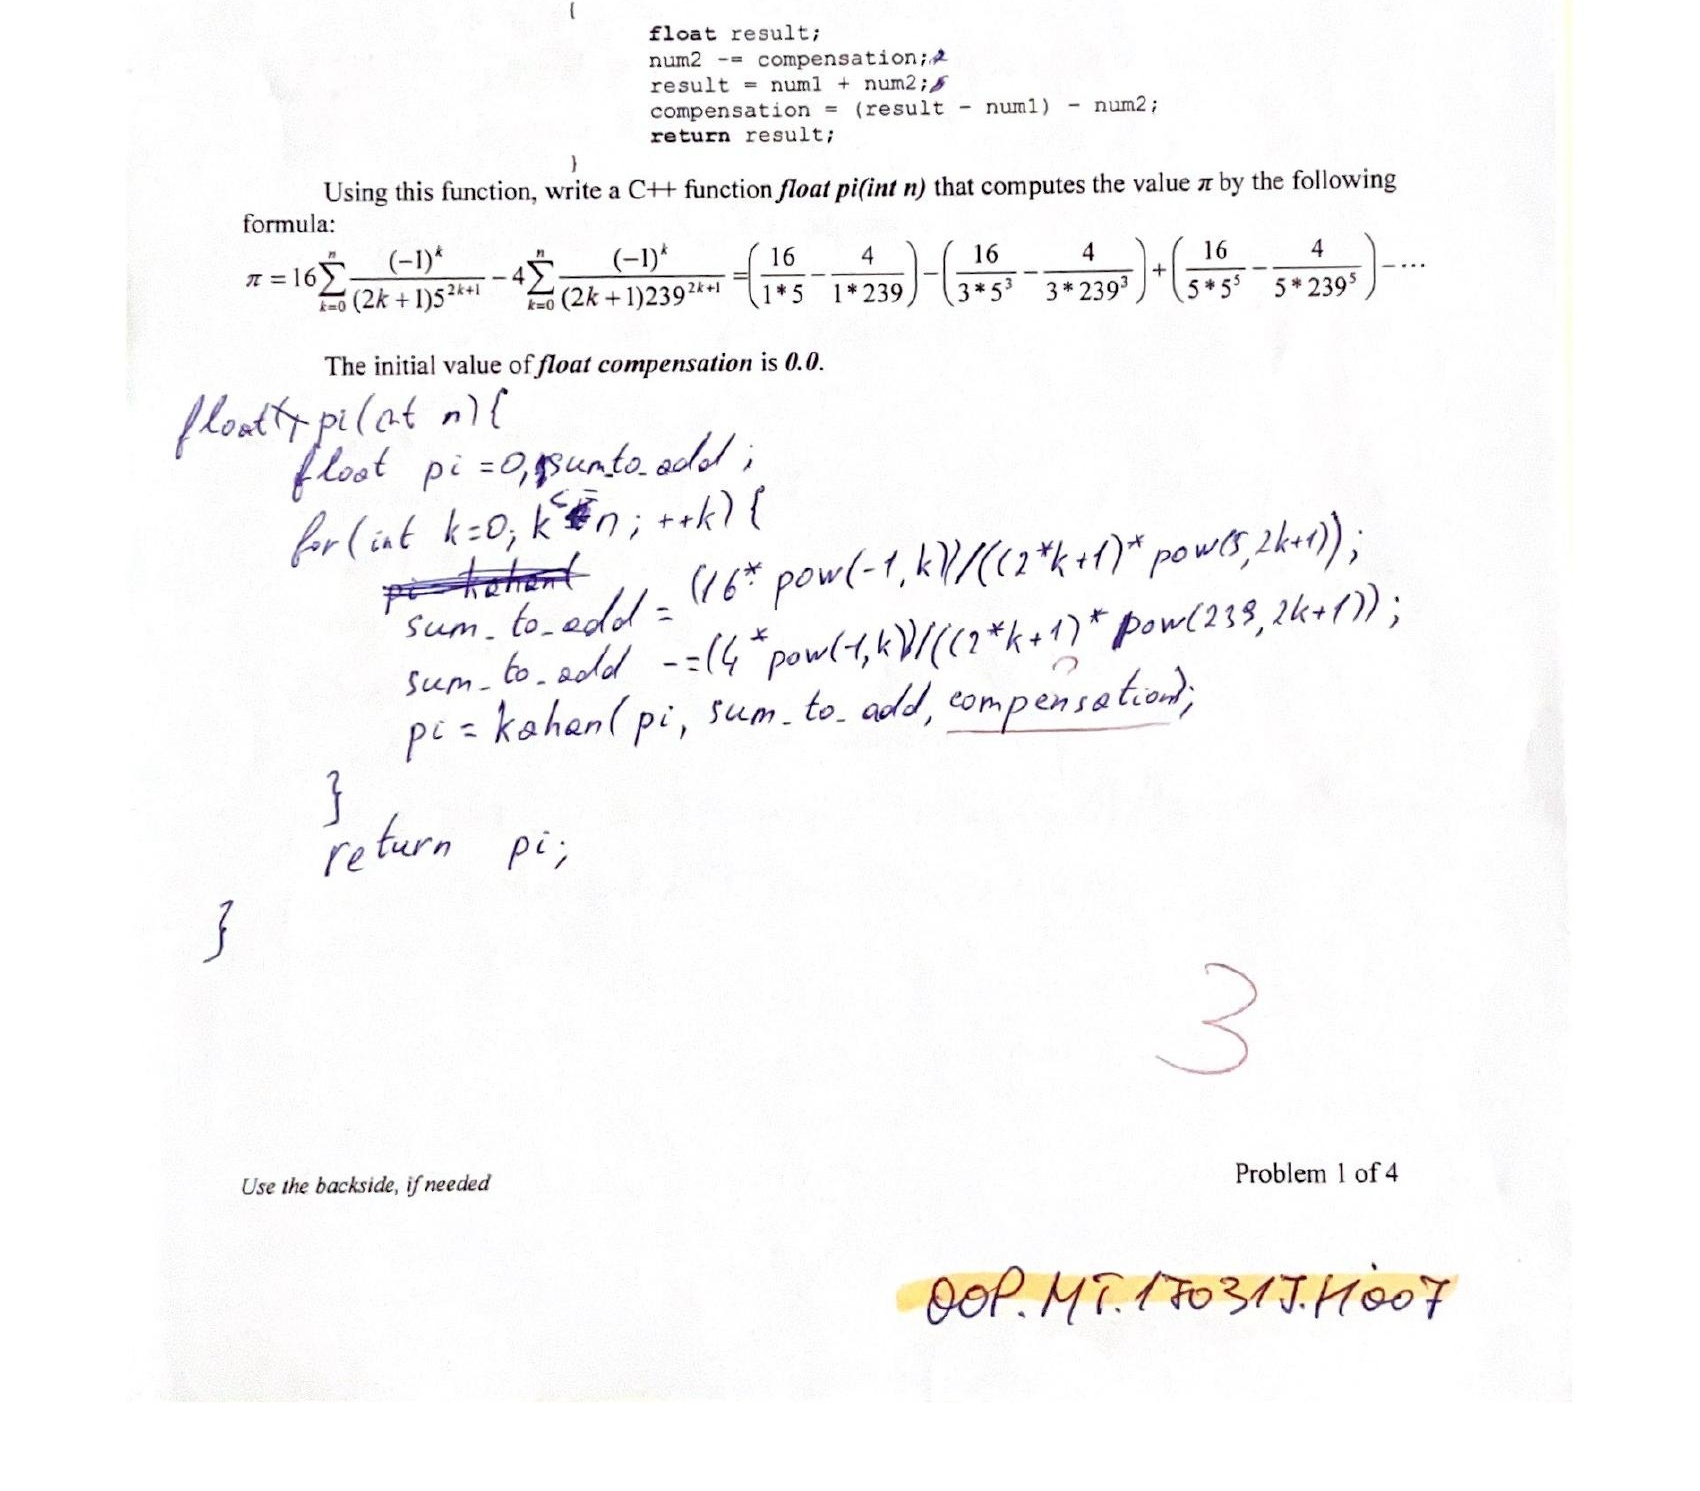 {
float result;
num2 -= compensation;2
result = num1 + num2;
compensation = (result - num1) - num2;
return result;
}
Using this function, write a C++ function float pi(int n) that computes the value π by the following
formula:
π = 16∑_{k=0}^{n} (-1)^k / ((2k+1)5^{2k+1}) - 4∑_{k=0}^{n} (-1)^k / ((2k+1)239^{2k+1}) = (16/(1*5) - 4/(1*239)) - (16/(3*5^3) - 4/(3*239^3)) + (16/(5*5^5) - 4/(5*239^5)) - ...
The initial value of float compensation is 0.0.
float pi(int n){
float pi=0, sum_to_add;
for(int k=0; k<=n; ++k){
pi kahan(
sum_to_add = (16*pow(-1,k))/((2*k+1)*pow(5,2k+1));
sum_to_add -=(4*pow(-1,k))/((2*k+1)*pow(239,2k+1));
?
pi = kahan(pi, sum_to_add, compensation);
}
return pi;
}
3
Use the backside, if needed
Problem 1 of 4
OOP.MT.170317.H007